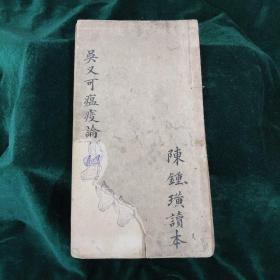 吳又可瘟疫論
陳鍾璜讀本